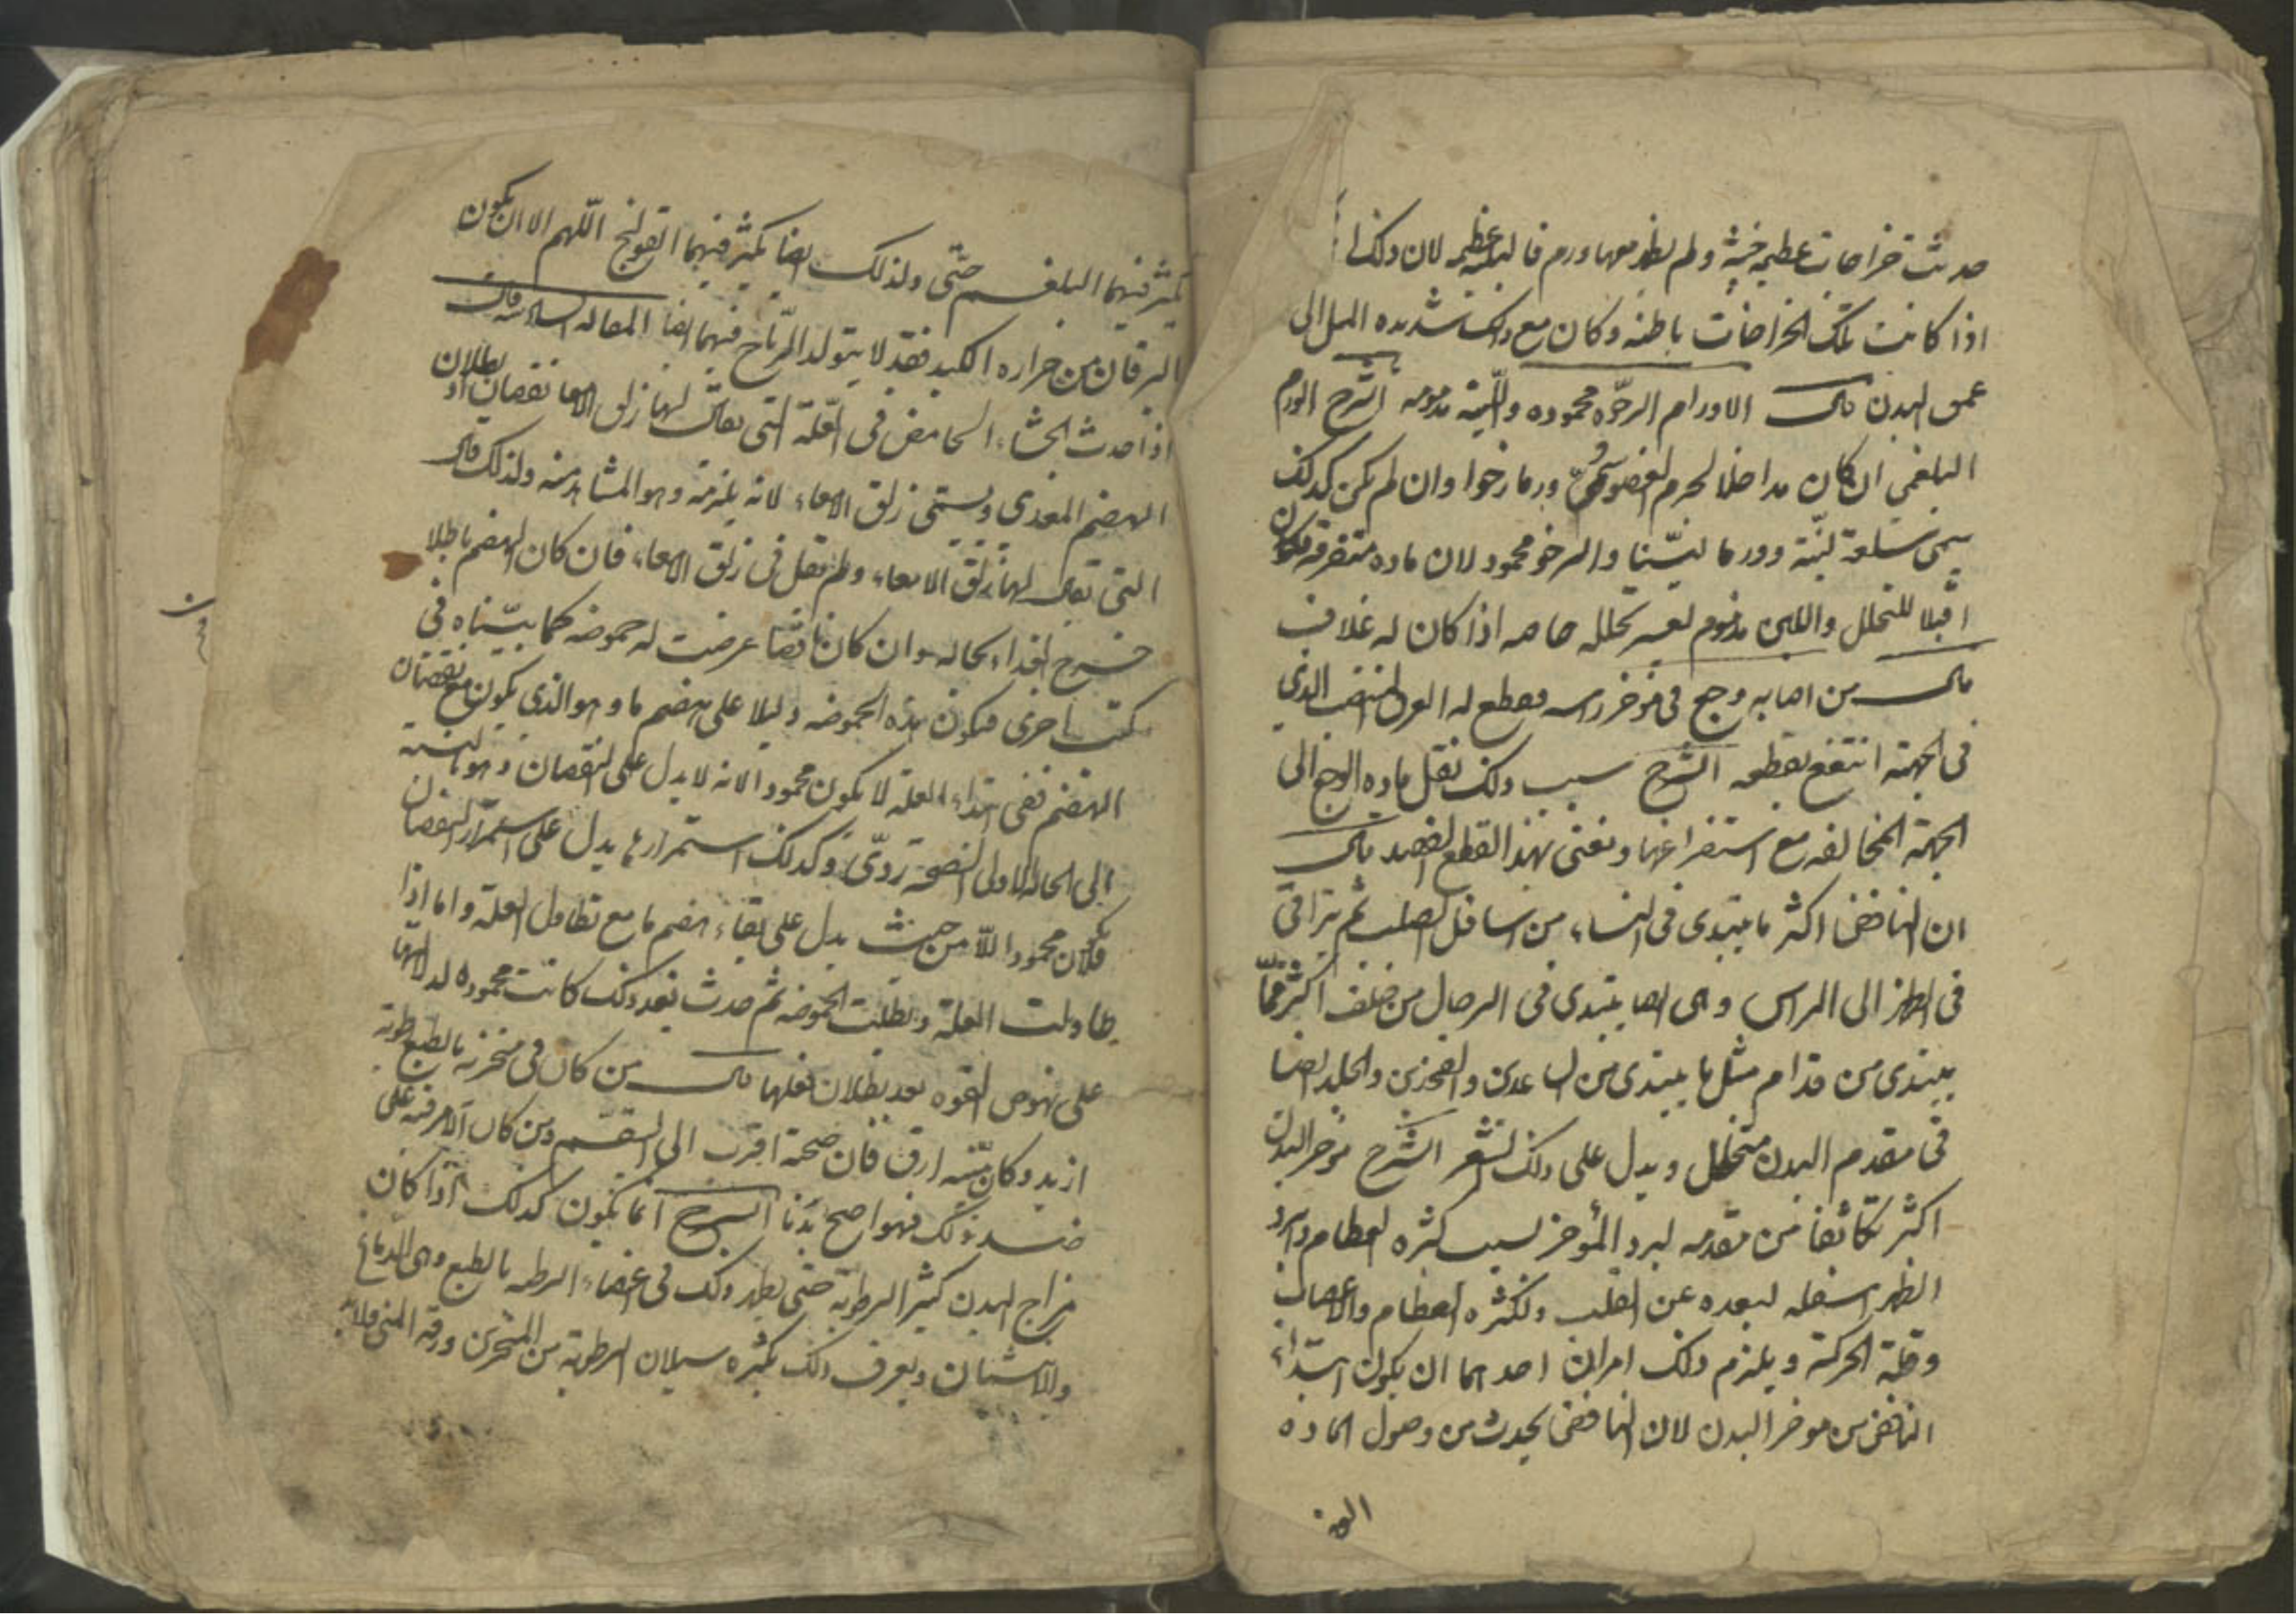 حدثت خراجات عظيمة خبيثة ولم يظهر معها ورم فالبلية عظيمة لان ذلك
اذا كانت تلك الخراجات باطنه وكان مع ذلك شديده الميل الى
عمق البدن قال الاورام الرخوه محموده واللينة مذمومه الشرح الورم
البلغمى ان كان مداخلا لجرم العضو سمى ورما رخوا وان لم يكن كذلك
سمى سلعة لينة وورما لينا والرخو محمود لان مادة متفرقة فتكون
اقبلا للتحلل واللين مذموم لعسر تحلله خاصه اذا كان له غلاف
قال من اصابه وجع فى مؤخر راسه فقطع له العرق المنتصب الذى
فى الجبهة انتفع بقطعه الشرح سبب ذلك نقل مادة الوجع الى
الجهة المخالفه مع استفراغها ونعنى بهذا القطع الفصد قال
ان النافض اكثر ما يبتدى فى النساء من اسافل الصلب ثم يتراقى
فى الظهر الى الراس وهى ايضا يبتدى فى الرجال من خلف اكثر مما
يبتدى من قدام مثل ما يبتدى من الساعدين والفخذين والجلد ايضا
فى مقدم البدن متخلخل ويدل على ذلك الشعر الشرح مؤخر البدن
اكثر تكاثفا من مقدمه لبرد المؤخر لسبب كثره العظام وابرد
الظهر اسفله لبعده عن القلب ولكثره العظام والاعصاب
وقلة الحركة ويلزم ذلك امران احدهما ان يكون ابتداء
النافض من موخر البدن لان النافض يحدث من وصول الماده
يكثر فيهما البلغم حتى ولذلك ايضا يكثر فيهما القولنج اللهم الا ان يكون
اليرقان من حراره الكبد فقد لا يتولد الرياح فيهما ايضا المقاله السادسه قال
اذا حدث الجشاء الحامض فى العلة التى يقال لها زلق الامعا نقصان او بطلان
الهضم المعدى ويسمى زلق الامعاء لانه يلزمه وهو المشاهد منه ولذلك قال
التى يقال لها زلق الامعاء ولم يقل فى زلق الامعاء فان كان الهضم باطلا
خرج الغذاء بحاله وان كان ناقصا عرضت له حموضه كما بيناه فى
كتب اخرى فيكون هذه الحموضه دليلا على هضم ما وهو الذى يكون مع نقصان
الهضم ففى ابتداء العلة لا يكون محمودا لانه لا يدل على النقصان وهو بالنسبة
الى الحاله الاولى الصحة ردى وكذلك استمرارها يدل على استمرار النقصان
فلا يكون محمودا اللا من حيث يدل على بقاء هضم ما مع تطاول العلة واما اذا
طاولت العلة وبطلت الحموضه ثم حدث بعد ذلك كانت محموده لدلالتها
على نهوض القوه بعد بطلان فعلها قال من كان فى منخريه بالطبع رطوبة
ازيد وكان منيه ارق فان صحته اقرب الى السقم ومن كان الامر فيه على
ضد ذلك فهو اصح بدنا الشرح انما يكون كذلك اذا كان
مزاج البدن كثير الرطوبة حتى يظهر ذلك فى اعضاء الرطبه بالطبع وهى الدماغ
والانثيان ويعرف ذلك بكثره سيلان الرطوبة من المنخرين ورقة المنى